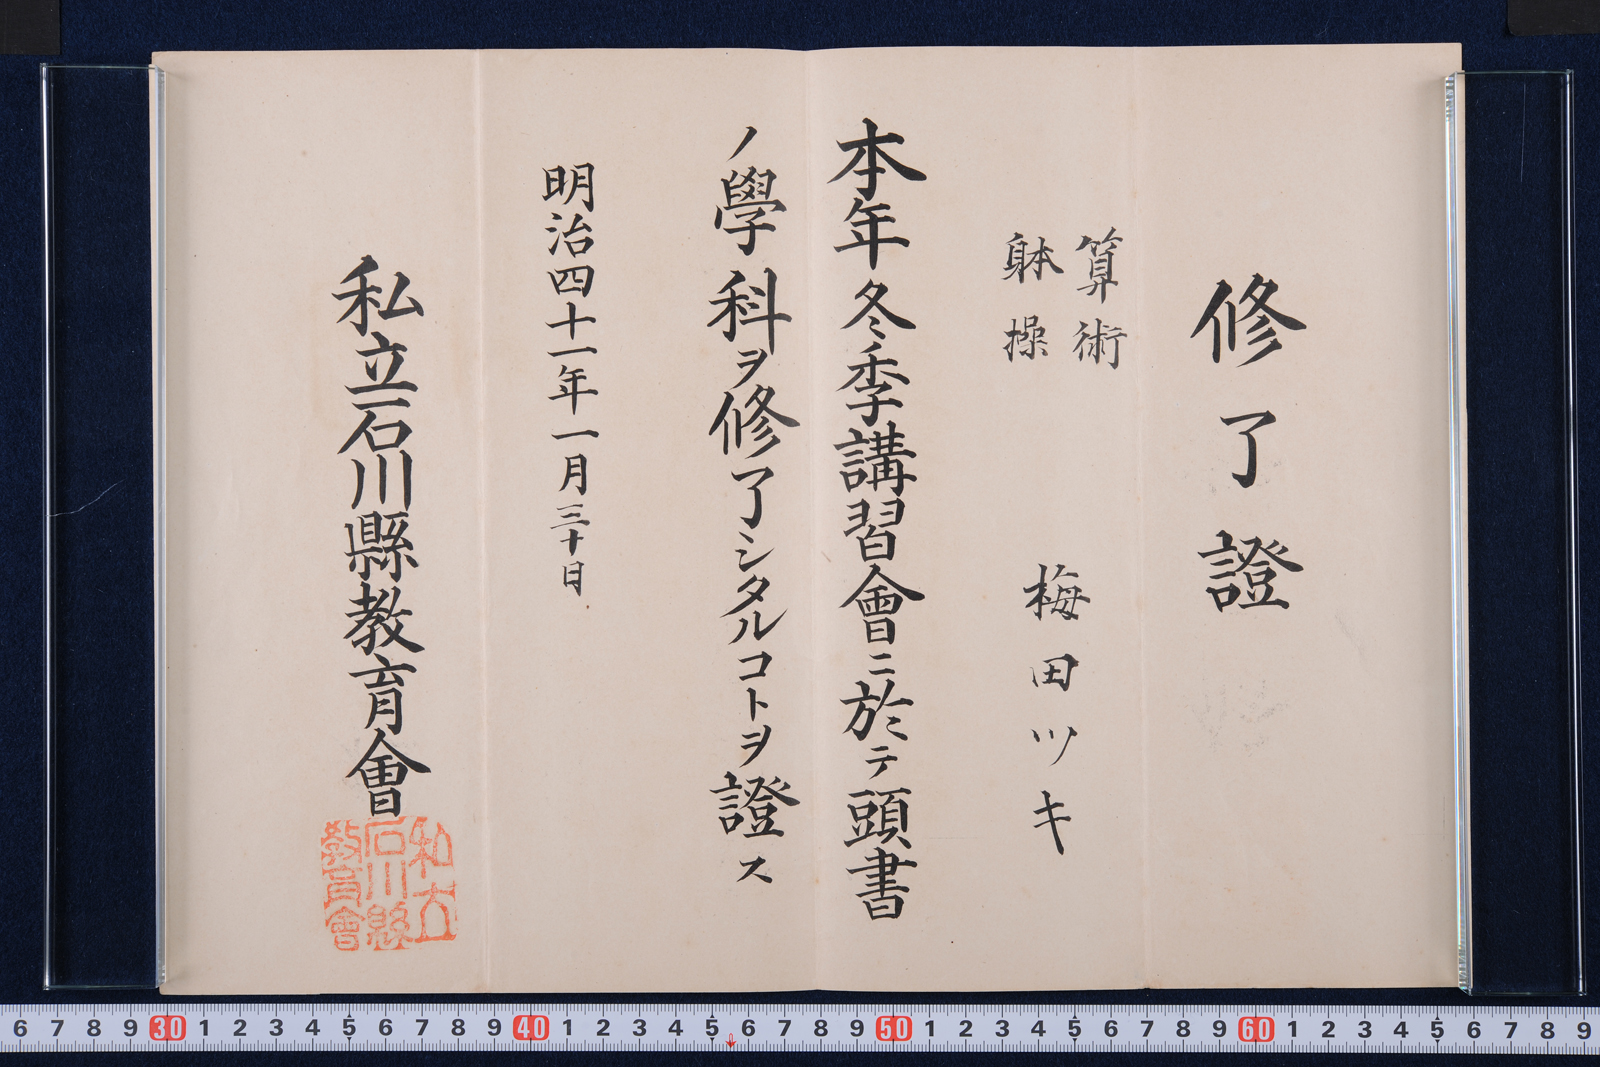 修了證
算術
躰操
梅田ツキ
本年冬季講習會ニ於テ頭書
ノ學科ヲ修了シタルコトヲ證ス
明治四十一年一月三十日
私立石川縣教育會
私立
石川縣
教育會
6 7 8 9 30 1 2 3 4 5 6 7 8 9 40 1 2 3 4 5 6 7 8 9 50 1 2 3 4 5 6 7 8 9 60 1 2 3 4 5 6 7 8 9